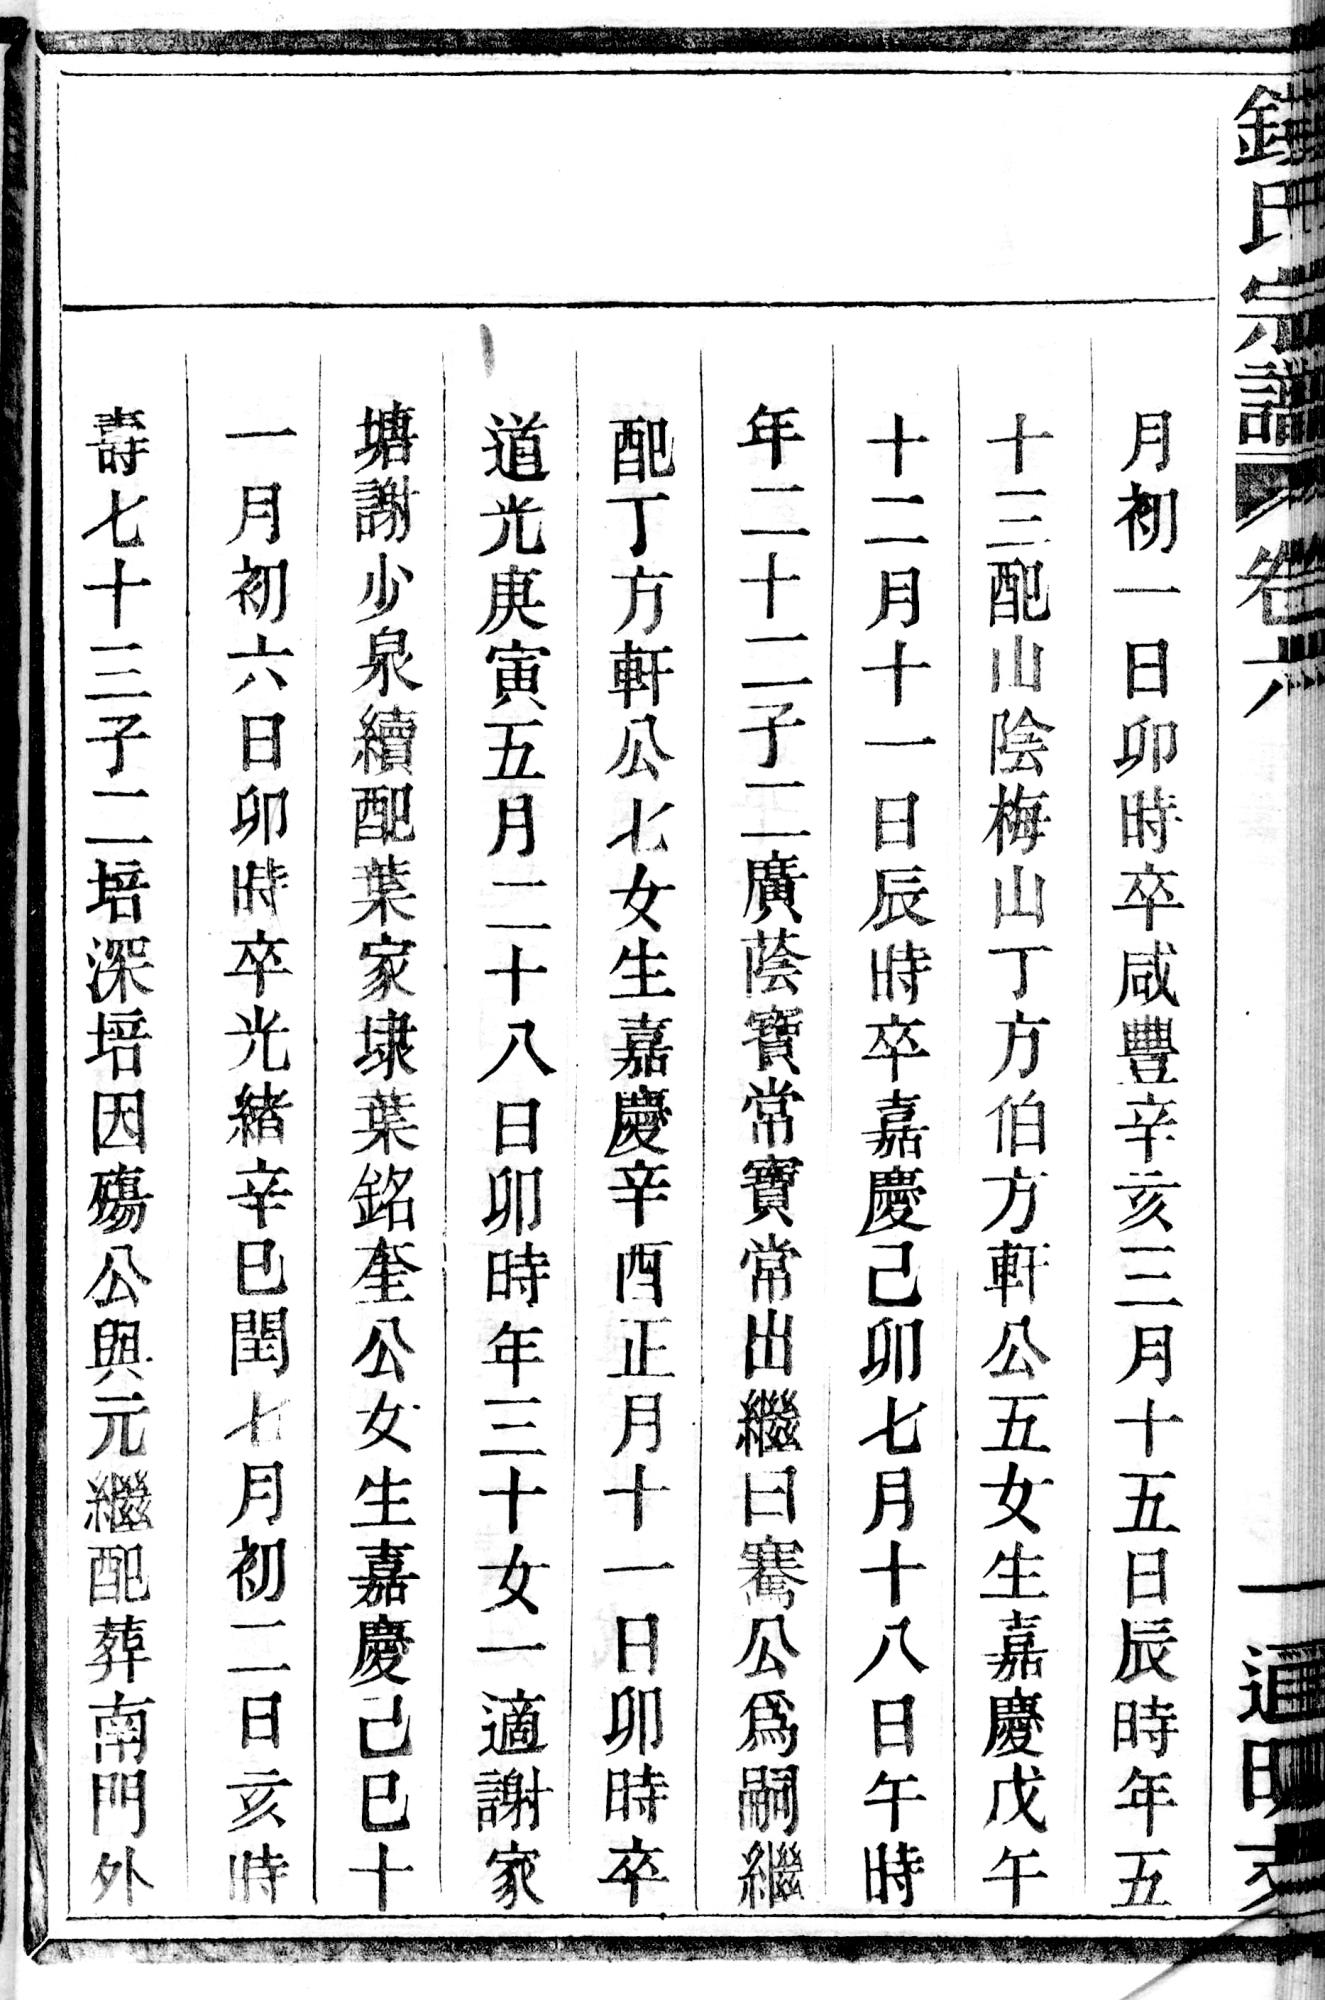 宗譜 卷六
月初一日卯時卒咸豐辛亥三月十五日辰時年五
十三配山陰梅山丁方伯方軒公五女生嘉慶戊午
十二月十一日辰時卒嘉慶己卯七月十八日午時
年二十二子二廣蔭寶常寶常出繼曰騫公爲嗣繼
配丁方軒公七女生嘉慶辛酉正月十一日卯時卒
道光庚寅五月二十八日卯時年三十女一適謝家
塘謝少泉續配葉家埭葉銘奎公女生嘉慶己巳十
一月初六日卯時卒光緒辛巳閏七月初二日亥時
壽七十三子二培深培因殤公與元繼配葬南門外